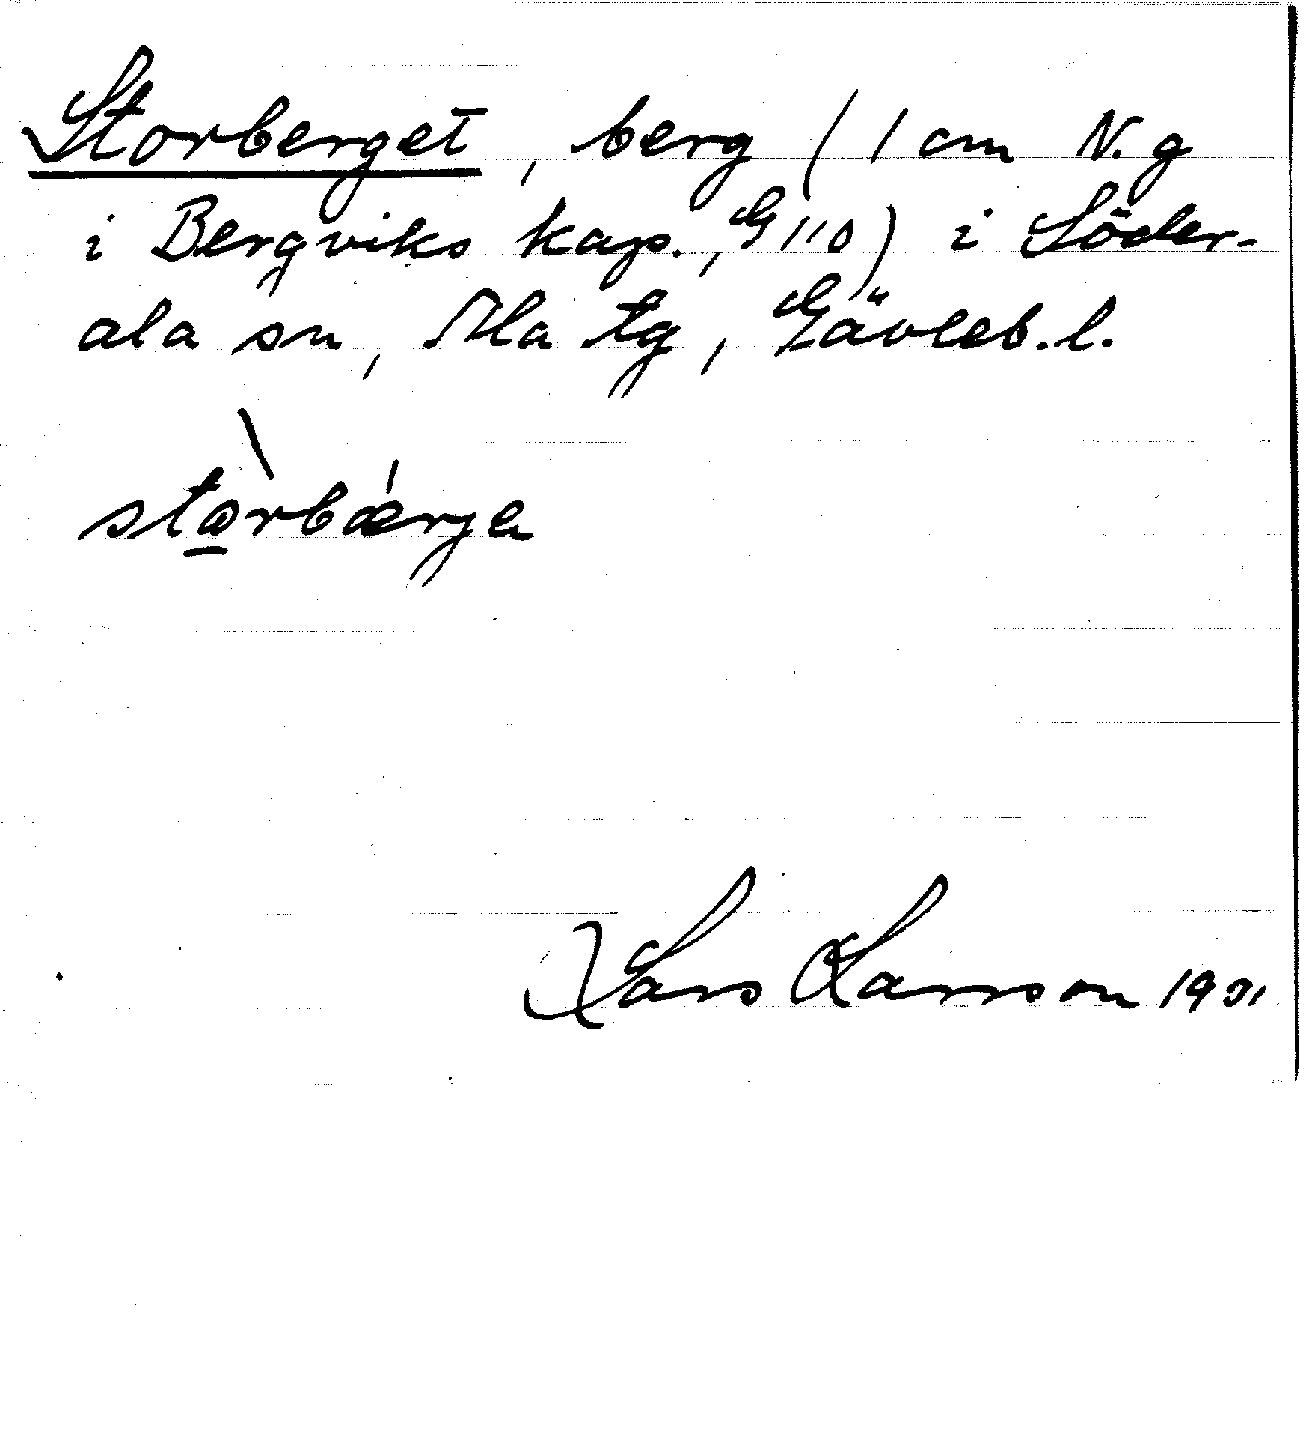 Storberget, berg (1 cm N. g
i Bergviks kap., G 110) i Söder-
ala sn, Ala tg, Gävleb. l.
stòrbǽrja
Lars Larsson